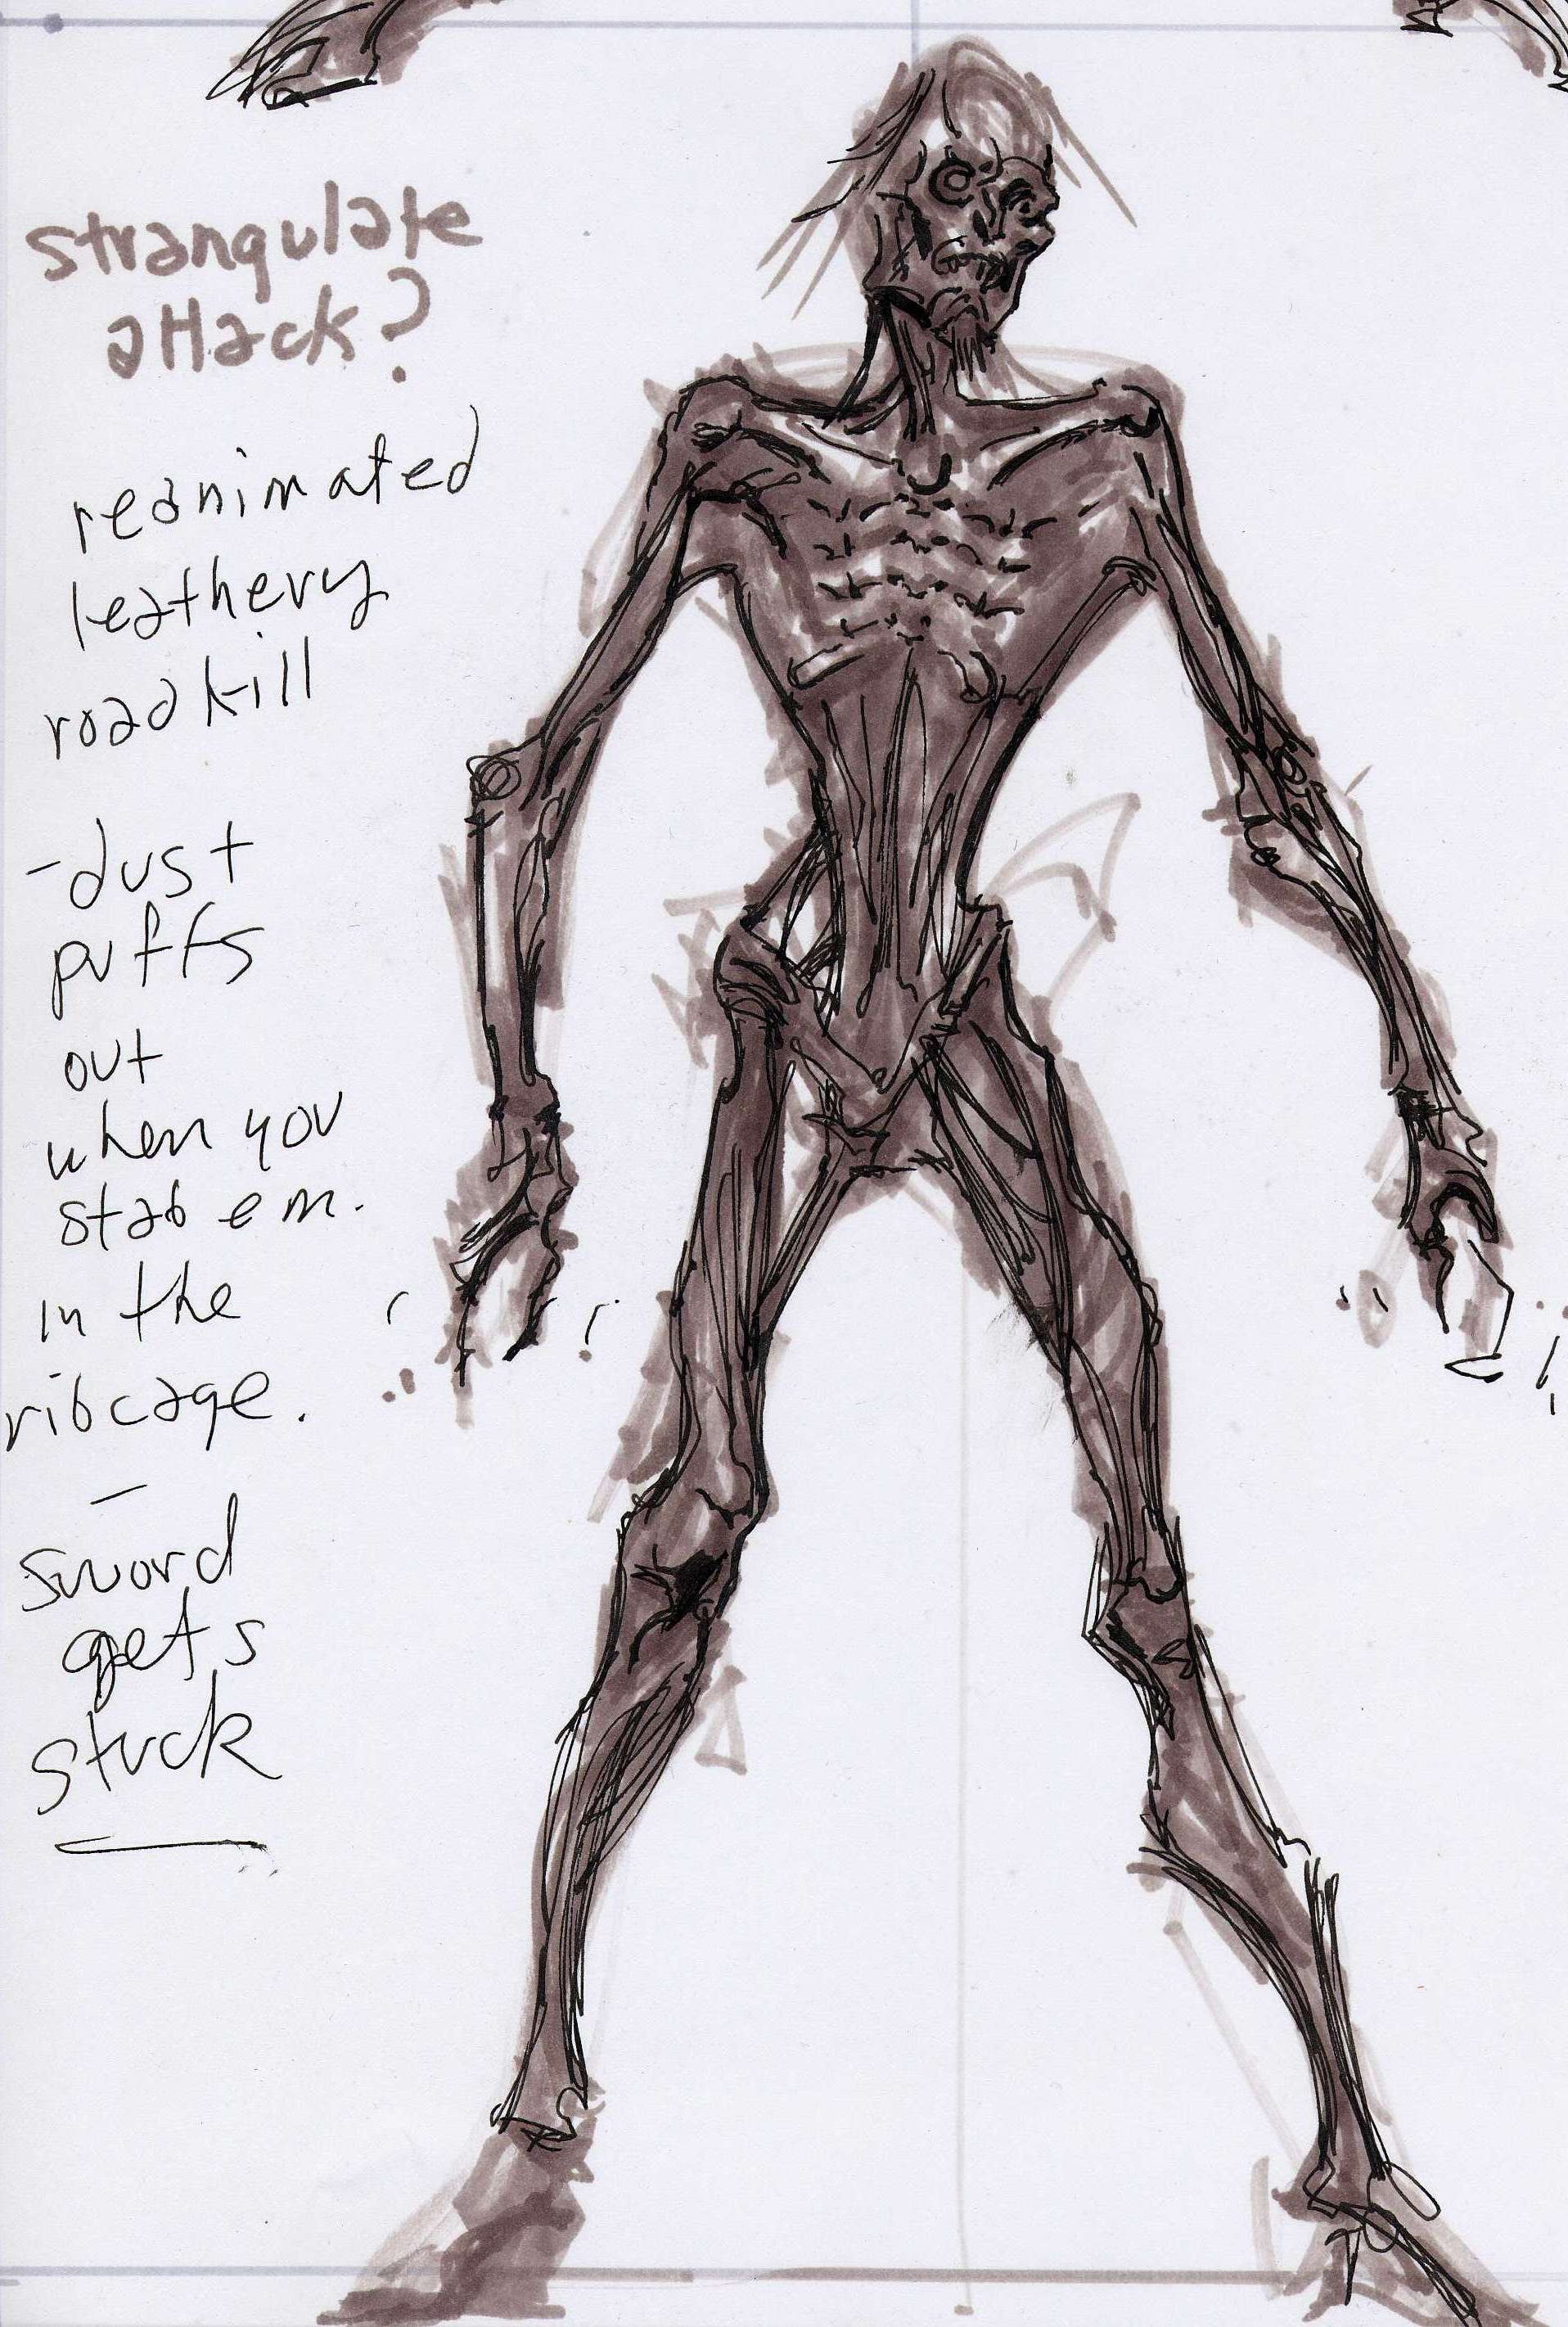 strangulate
attack?
reanimated
leathery
roadkill
-dust
puffs
out
when you
stab em.
in the
ribcage.
-
sword
gets
stuck